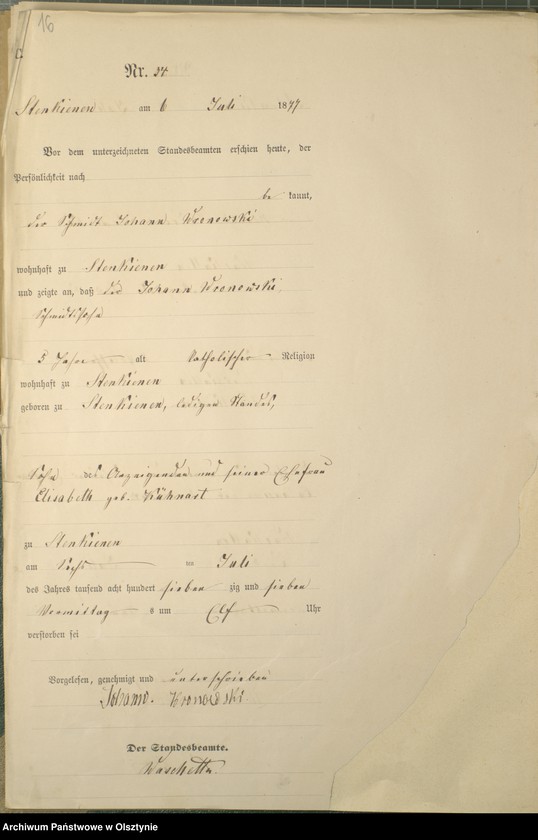 16
Nr. 54
Stenkienen am 6 Juli 1877
Vor dem unterzeichneten Standesbeamten erschien heute, der
Persönlichkeit nach
be kannt,
der Schmidt Johann Wronowski
wohnhaft zu Stenkienen
und zeigte an, daß der Johann Wronowski
Schmidtssohn
5 Jahre alt katholischer Religion
wohnhaft zu Stenkienen
geboren zu Stenkienen, ledigen Standes,
Sohn des Anzeigenden und seiner Ehefrau
Elisabeth geb. Kühnast
zu Stenkienen
am sechs ten Juli
des Jahres tausend acht hundert sieben zig und sieben
Vormittag s um Elf Uhr
verstorben sei
Vorgelesen, genehmigt und unterschrieben
Johann. Wronowski
Der Standesbeamte.
Archiwum Państwowe w Olsztynie